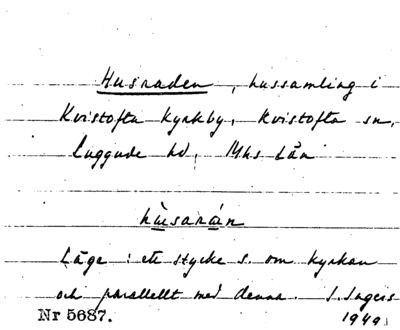 Husraden, hussamling i
Kvistofta kyrkby, Kvistofta sn,
Luggude hd, Mhs Län
Läge: ett stycke s. om kyrkan
och parallellt med denna. I. Ingers
Nr 5687. 1949.